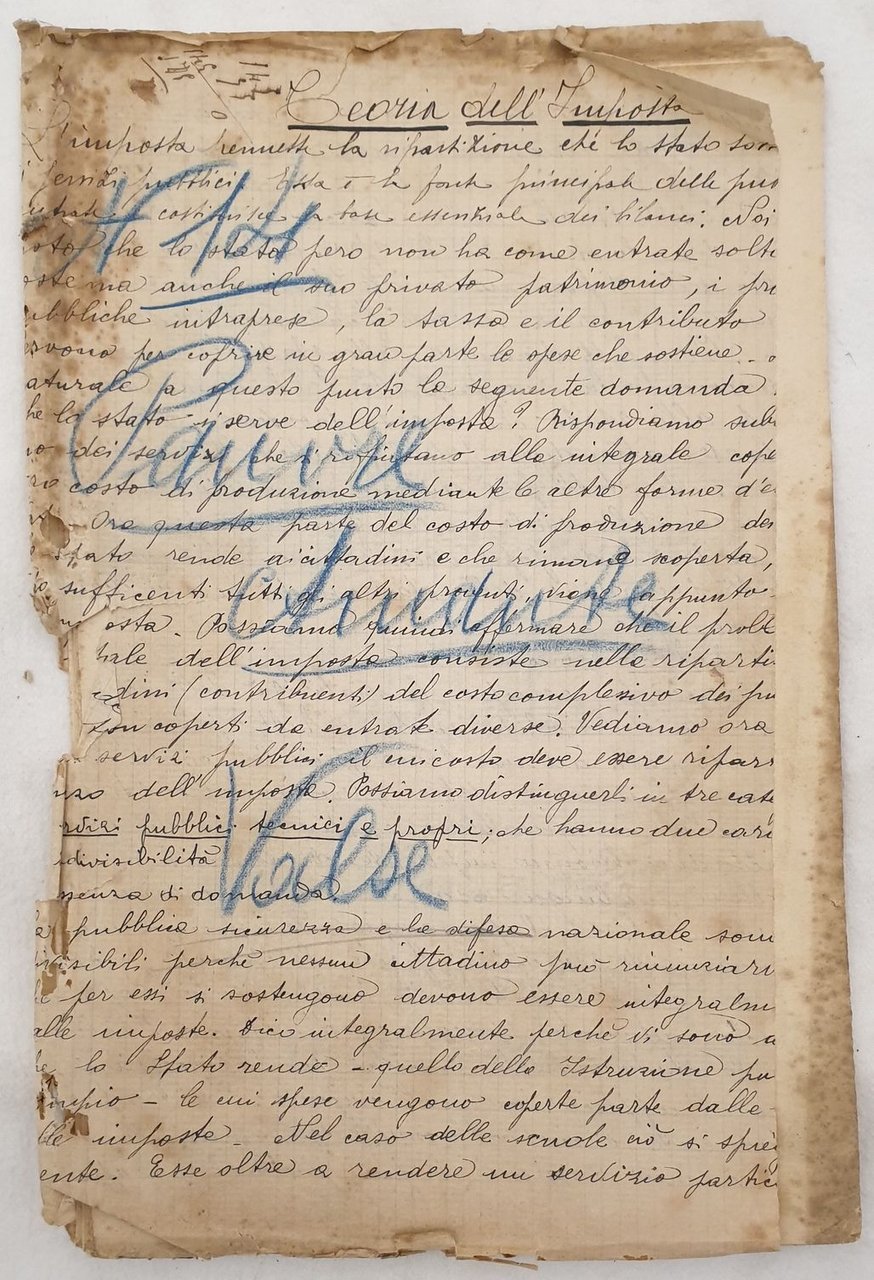 Teoria dell'Imposta
L'imposta permette la ripartizione che lo stato som
servizi pubblici. Essa è la fonte principale delle pub
entrate e costituisce la base essenziale dei bilanci. Noi
che lo stato pero non ha come entrate solt
oste ma anche il suo privato patrimonio, i pro
ubbliche intraprese, la tassa e il contributo
ervono per coprire in gran parte le spese che sostiene.
aturale a questo punto la seguente domanda
he lo stato si serve dell'imposta? Rispondiamo sub
no dei servizi che si rifiutano alla integrale cope
costo di produzione mediante le altre forme d'e
Ora questa parte del costo di produzione dei
Stato rende ai cittadini e che rimane scoperta,
sufficenti tutti gli altri proventi, viene appunto
osta. Possiamo quindi affermare che il probl
tale dell'imposta consiste nella riparti
adini (contribuenti) del costo complessivo dei pu
non coperti da entrate diverse. Vediamo ora
servizi pubblici il cui costo deve essere ripart
nzo dell'imposta. Possiamo distinguerli in tre cate
rvizi pubblici tecnici e propri; che hanno due cara
ndivisibilità
ssenza di domanda.
la pubblica sicurezza e la difesa nazionale som
ivisibili perchè nessun cittadino può rinunziare
he per essi si sostengono devono essere integralm
alle imposte. Dico integralmente perchè vi sono a
he lo Stato rende - quello della Istruzione pu
empio - le cui spese vengono coperte parte dalle
lle imposte. Nel caso delle scuole ciò si spieg
ente. Esse oltre a rendere un servizio partic
# 14
Pauvre
Andante
Valse